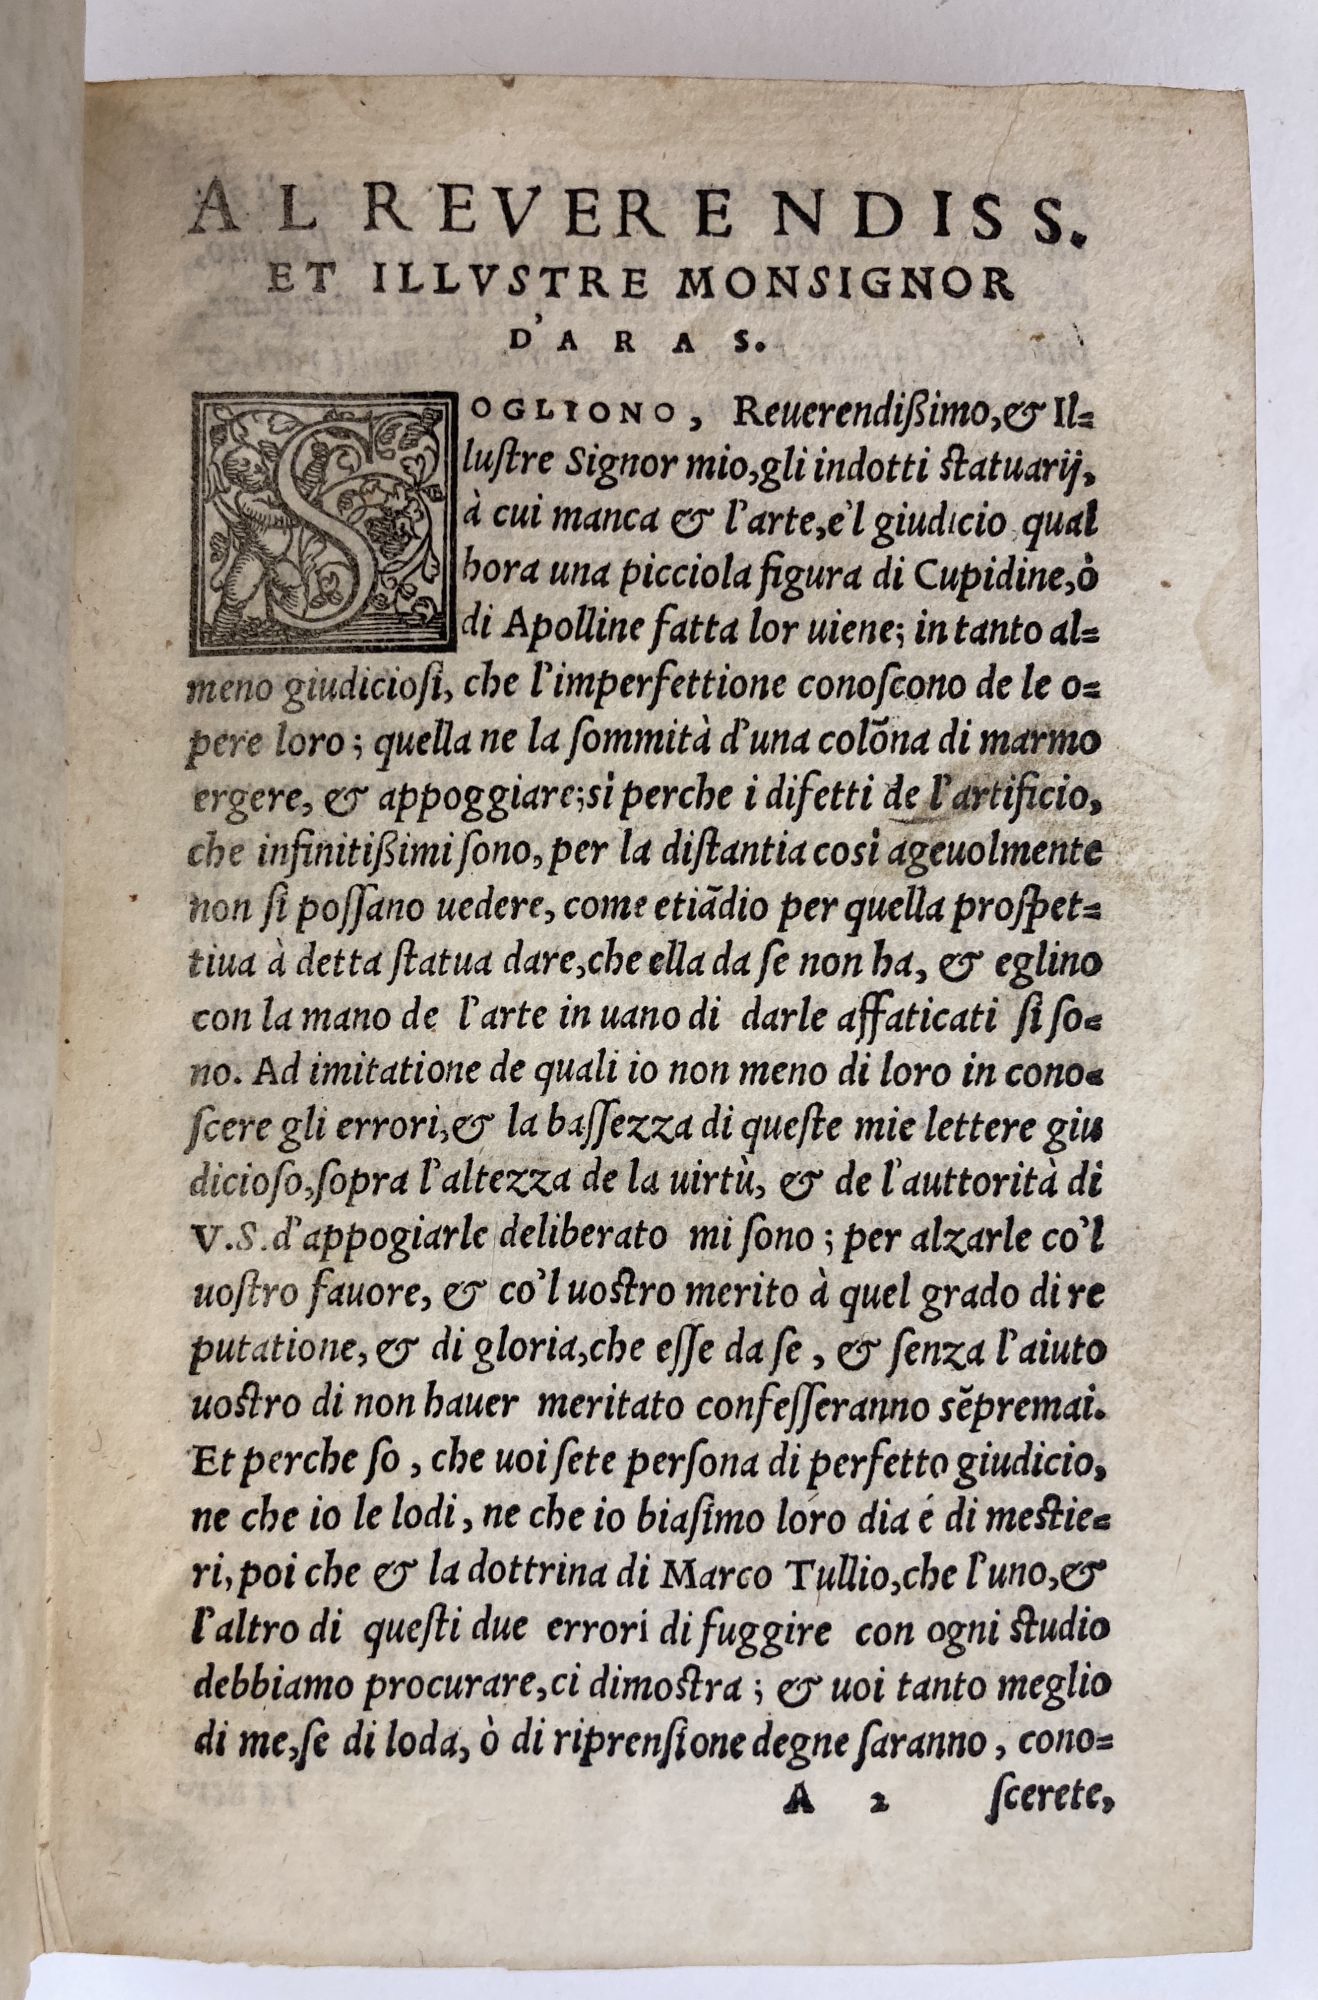 AL REVERENDISS.
ET ILLVSTRE MONSIGNOR
D'ARAS.
SOGLIONO, Reuerendißimo, & Il=
luſtre Signor mio, gli indotti ſtatuarij,
à cui manca & l'arte, e'l giudicio qual
hora una picciola figura di Cupidine, ò
di Apolline fatta lor uiene; in tanto al=
meno giudicioſi, che l'imperfettione conoſcono de le o=
pere loro; quella ne la ſommità d'una colõna di marmo
ergere, & appoggiare; sì perche i difetti de l'artificio,
che infinitißimi ſono, per la diſtantia così ageuolmente
non ſi poſſano uedere, come etiãdio per quella proſpet=
tiua à detta ſtatua dare, che ella da ſe non ha, & eglino
con la mano de l'arte in uano di darle affaticati ſi ſo=
no. Ad imitatione de quali io non meno di loro in cono=
ſcere gli errori, & la baſſezza di queſte mie lettere giu
dicioſo, ſopra l'altezza de la uirtù, & de l'auttorità di
V.S. d'appogiarle deliberato mi ſono; per alzarle co'l
uoſtro fauore, & co'l uoſtro merito à quel grado di re
putatione, & di gloria, che eſſe da ſe, & ſenza l'aiuto
uoſtro di non hauer meritato confeſſeranno sẽpremai.
Et perche ſo, che uoi ſete perſona di perfetto giudicio,
ne che io le lodi, ne che io biaſimo loro dia é di meſtie=
ri, poi che & la dottrina di Marco Tullio, che l'uno, &
l'altro di queſti due errori di fuggire con ogni ſtudio
debbiamo procurare, ci dimoſtra; & uoi tanto meglio
di me, ſe di loda, ò di riprenſione degne ſaranno, cono=
A 2 ſcerete,